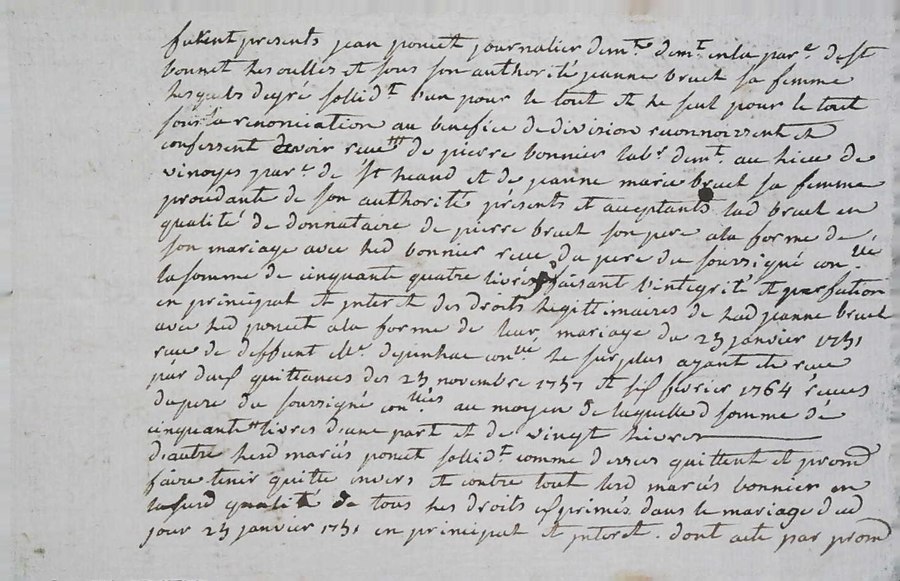 furent presents jean poncet journalier demt demt en la parse de st
bonnet les oulles et sous son authorité jeanne bruel sa femme
lesquels de gré sollidt l'un pour le tout et le seul pour le tout
sous la renonciation au benefice de division reconnoissent et
confessent avoir receu de pierre bonnier labr demt au lieu de
vinoyes parse de st heand et de jeanne marie bruel sa femme
procedante de son authorité présents et acceptants lad bruel en
qualité de donnataire de pierre bruel son pere a la forme de
son mariage avec led bonnier receu du pere du soussigné conre
la somme de cinquante quatre livres faisant l'integrité et perfection
en principal et interet des droits legittimaires de lad jeanne bruel
avec led poncet a la forme de leur mariage du 23 janvier 1751
receu de deffunt Me conre le surplus ayant eté receu
par deux quittances des 23 novembre 1757 et six fevrier 1764 receues
du pere du soussigné au moyen de laquelle d somme de
cinquante livres d'une part et de vingt livres
d'autre lesd mariés poncet sollidt comme dessus quittent et promt
faire tenir quitte envers et contre tout lesd mariés bonnier en
lasusd qualité de tous les droits exprimés dans le mariage dud
jour 23 janvier 1751 en principal et interet. dont acte par prom